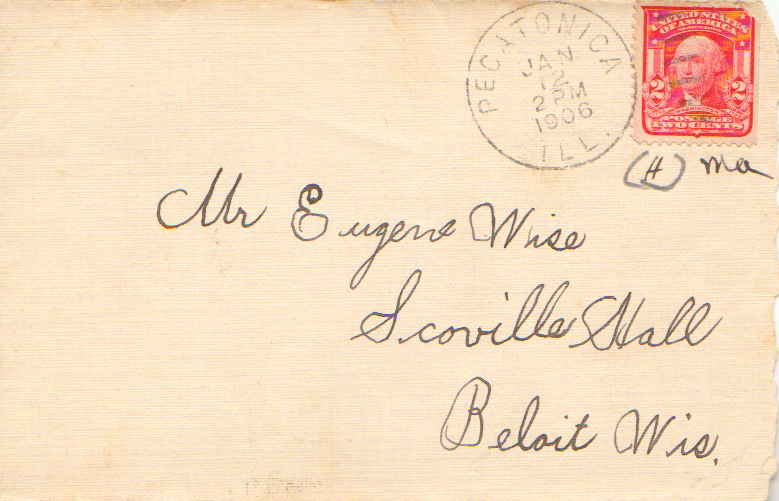 PECATONICA
JAN
12
2 PM
1906
ILL.
UNITED STATES
OF AMERICA
2 2
POSTAGE
TWO CENTS
(H) Ma
Mr Eugene Wise
Scoville Hall
Beloit Wis.